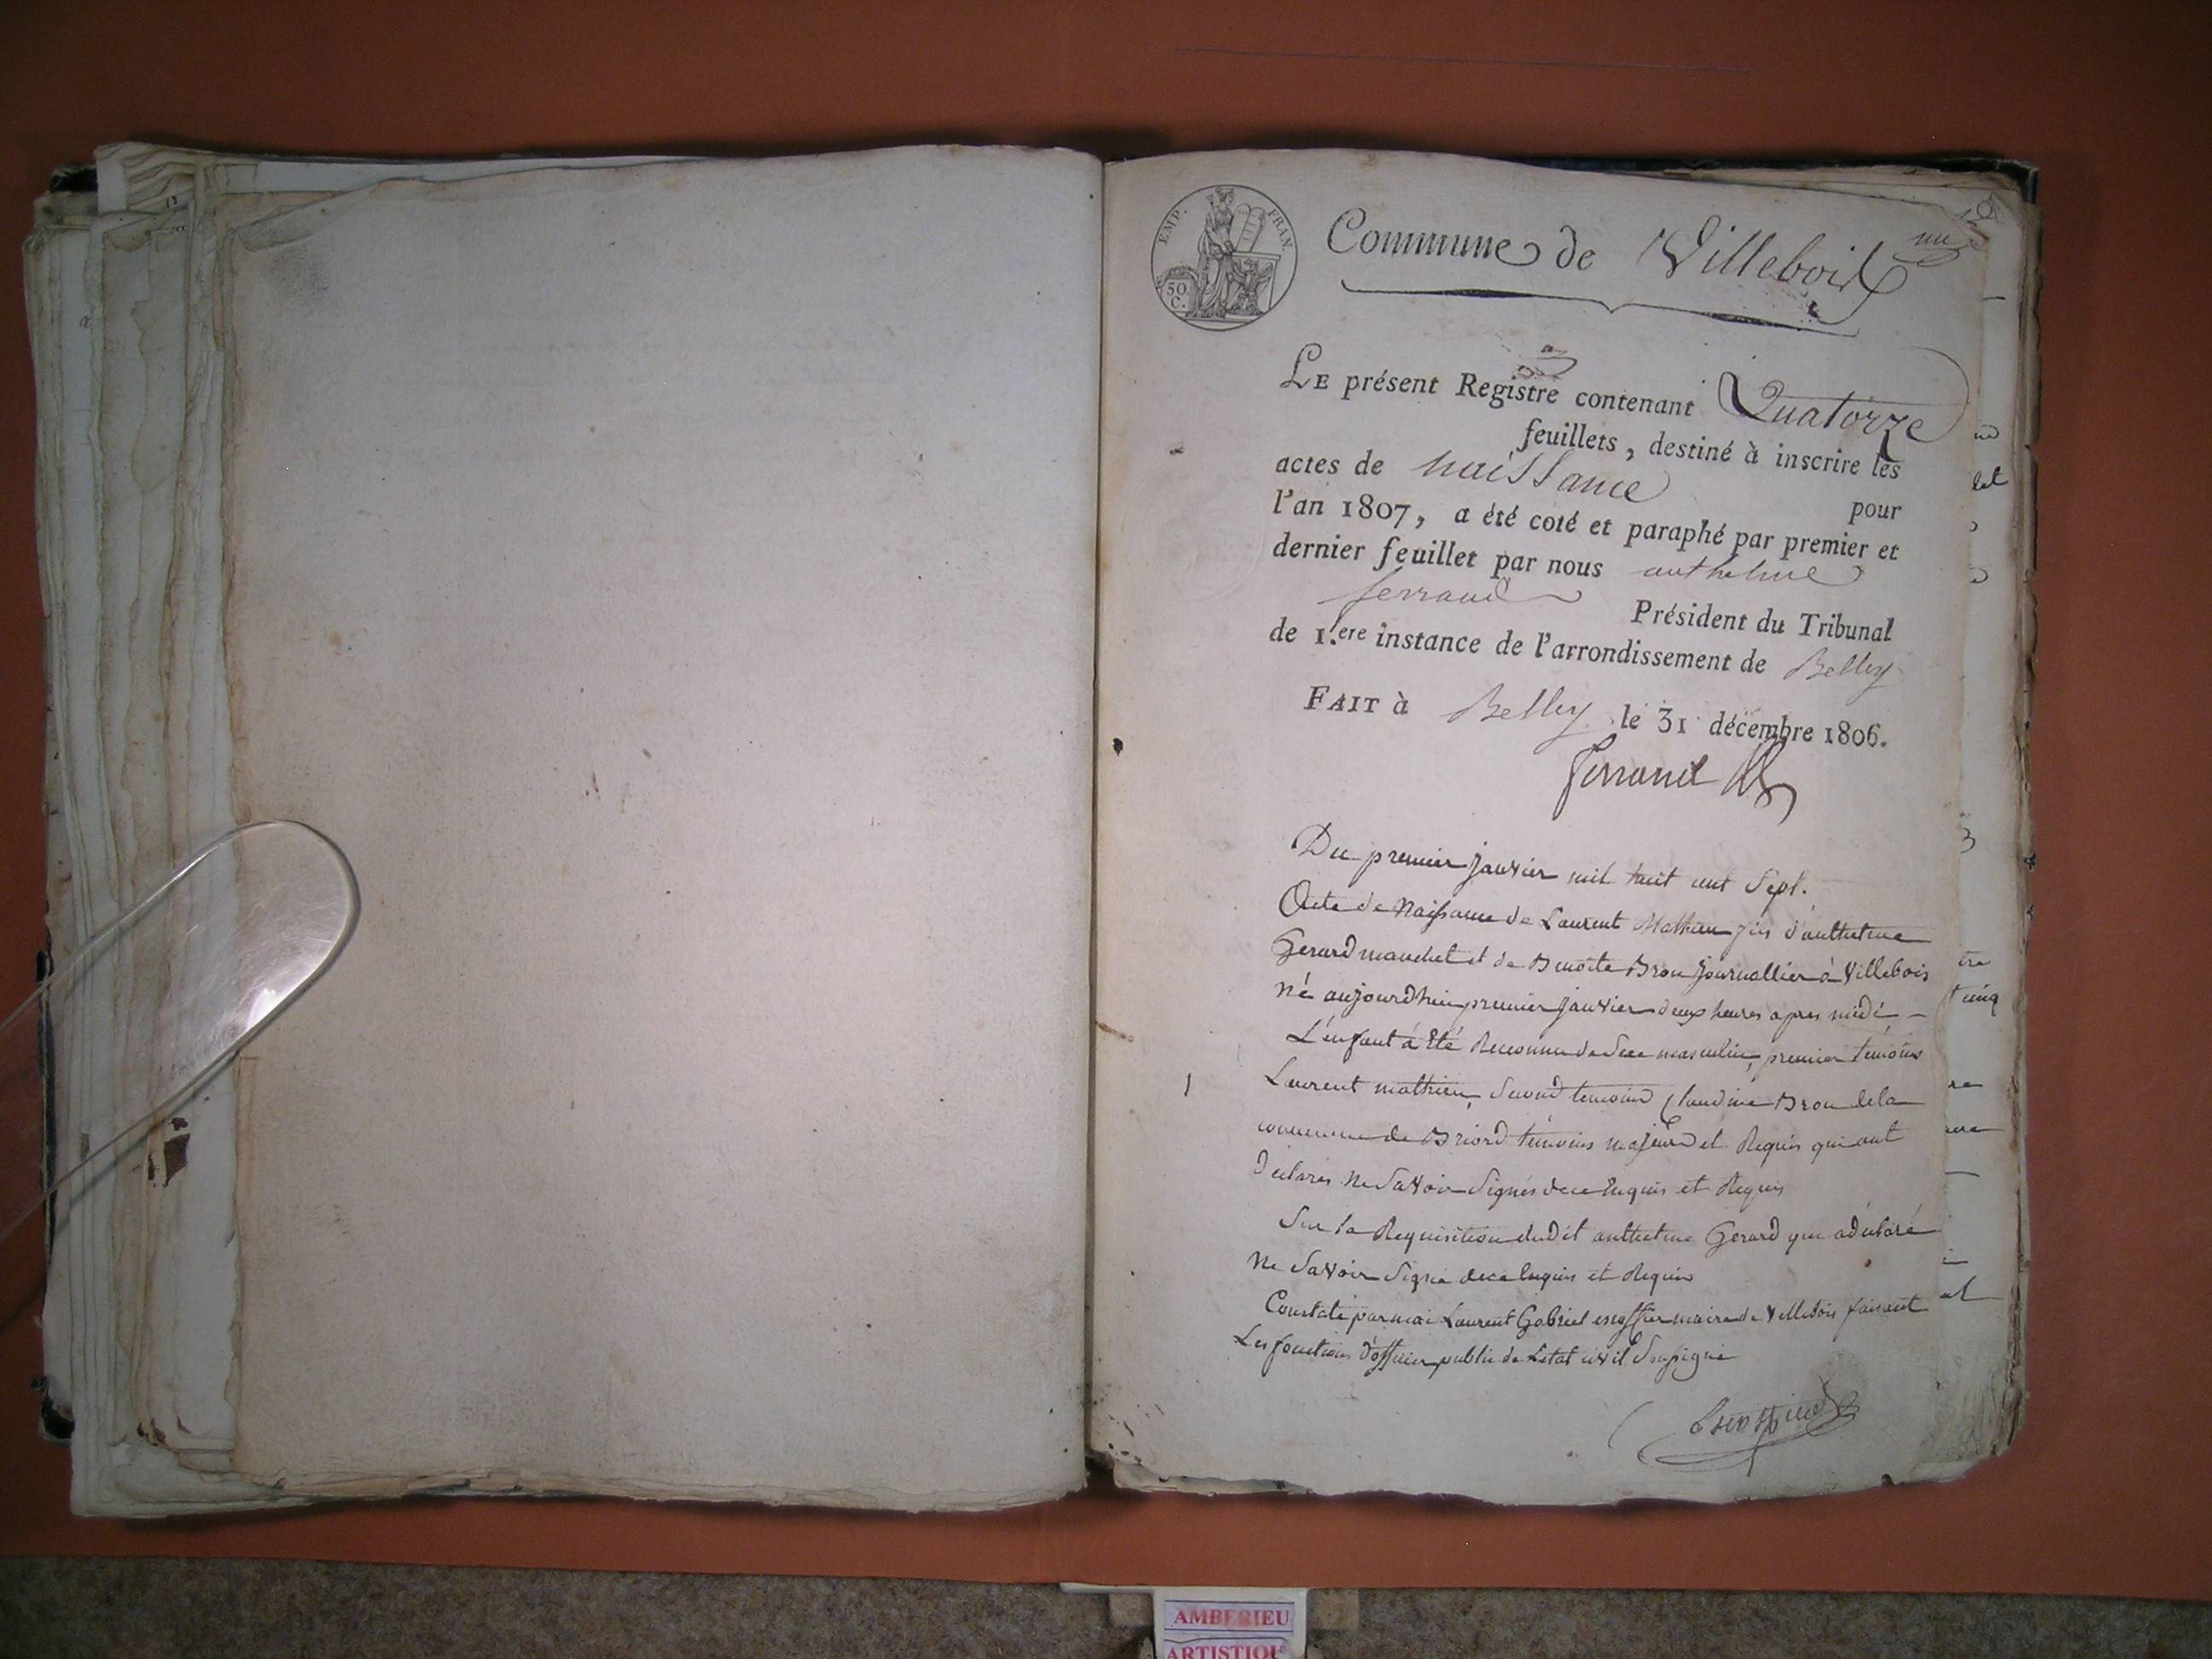 EMP. FRAN.
50
C.
Commune de Villebois
un
LE présent Registre contenant Quatorze
feuillets, destiné à inscrire les
actes de naissance pour
l'an 1807, a été coté et paraphé par premier et
dernier feuillet par nous anthelme
ferrand Président du Tribunal
de 1.ere instance de l'arrondissement de Belley
FAIT à Belley le 31 décembre 1806.
ferrand
Du premier janvier mil huit cent Sept.
Acte de Naissance de Laurent Mathieu fils d'anthelme
Gerard manchet et de Benoite Bron journallier à Villebois
né aujourdhui premier janvier deux heures apres midi -
L'enfant á Eté Reconnu de Sexe masculin, premier témoins
1 Laurent mathieu, Second temoins Claudine Bron de la
commune de Briord témoins majeurs et Requis qui ont
Déclarés Ne Savoir Signés de ce Enquis et Requis
Sur la Requisition dudit anthelme Gerard qui a déclaré
Ne Savoir Signé de ce Enquis et Requis
Constaté par moi Laurent Gabriel escoffier maire de Villebois faisant
Les fonctions d'officier public de Letat civil Soussigné
Escoffier
AMBERIEU
ARTISTIQU